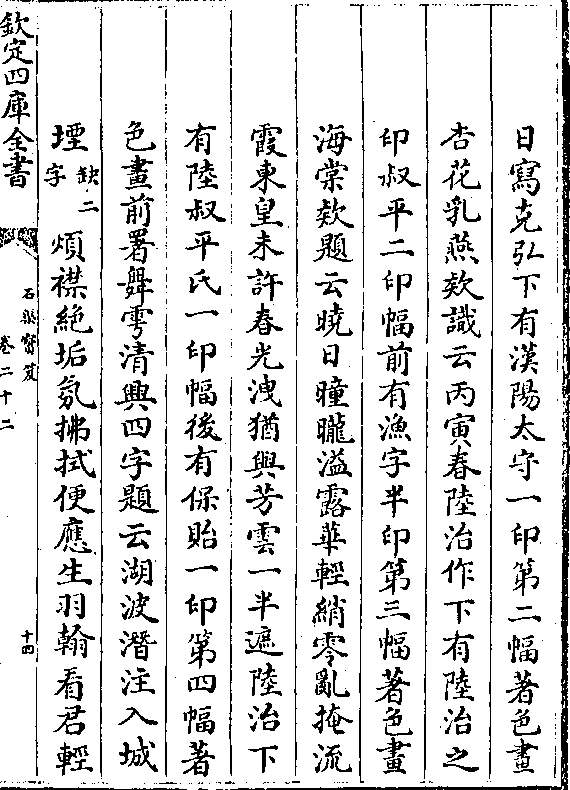 日寫克弘下有漢陽太守一印第二幅著色畫
杏花乳燕欵識云丙寅春陸治作下有陸治之
印叔平二印幅前有漁字半印第三幅著色畫
海棠欵題云曉日曈曨溢露華輕綃零亂掩流
霞東皇未許春光洩猶與芳雲一半遮陸治下
有陸叔平氏一印幅後有保貽一印第四幅著
色畫前署舞雩清興四字題云湖波潛注入城
堙缺二字煩襟絶垢氛拂拭便應生羽翰看君輕
欽定四庫全書
石渠寳笈
卷二十二
十四